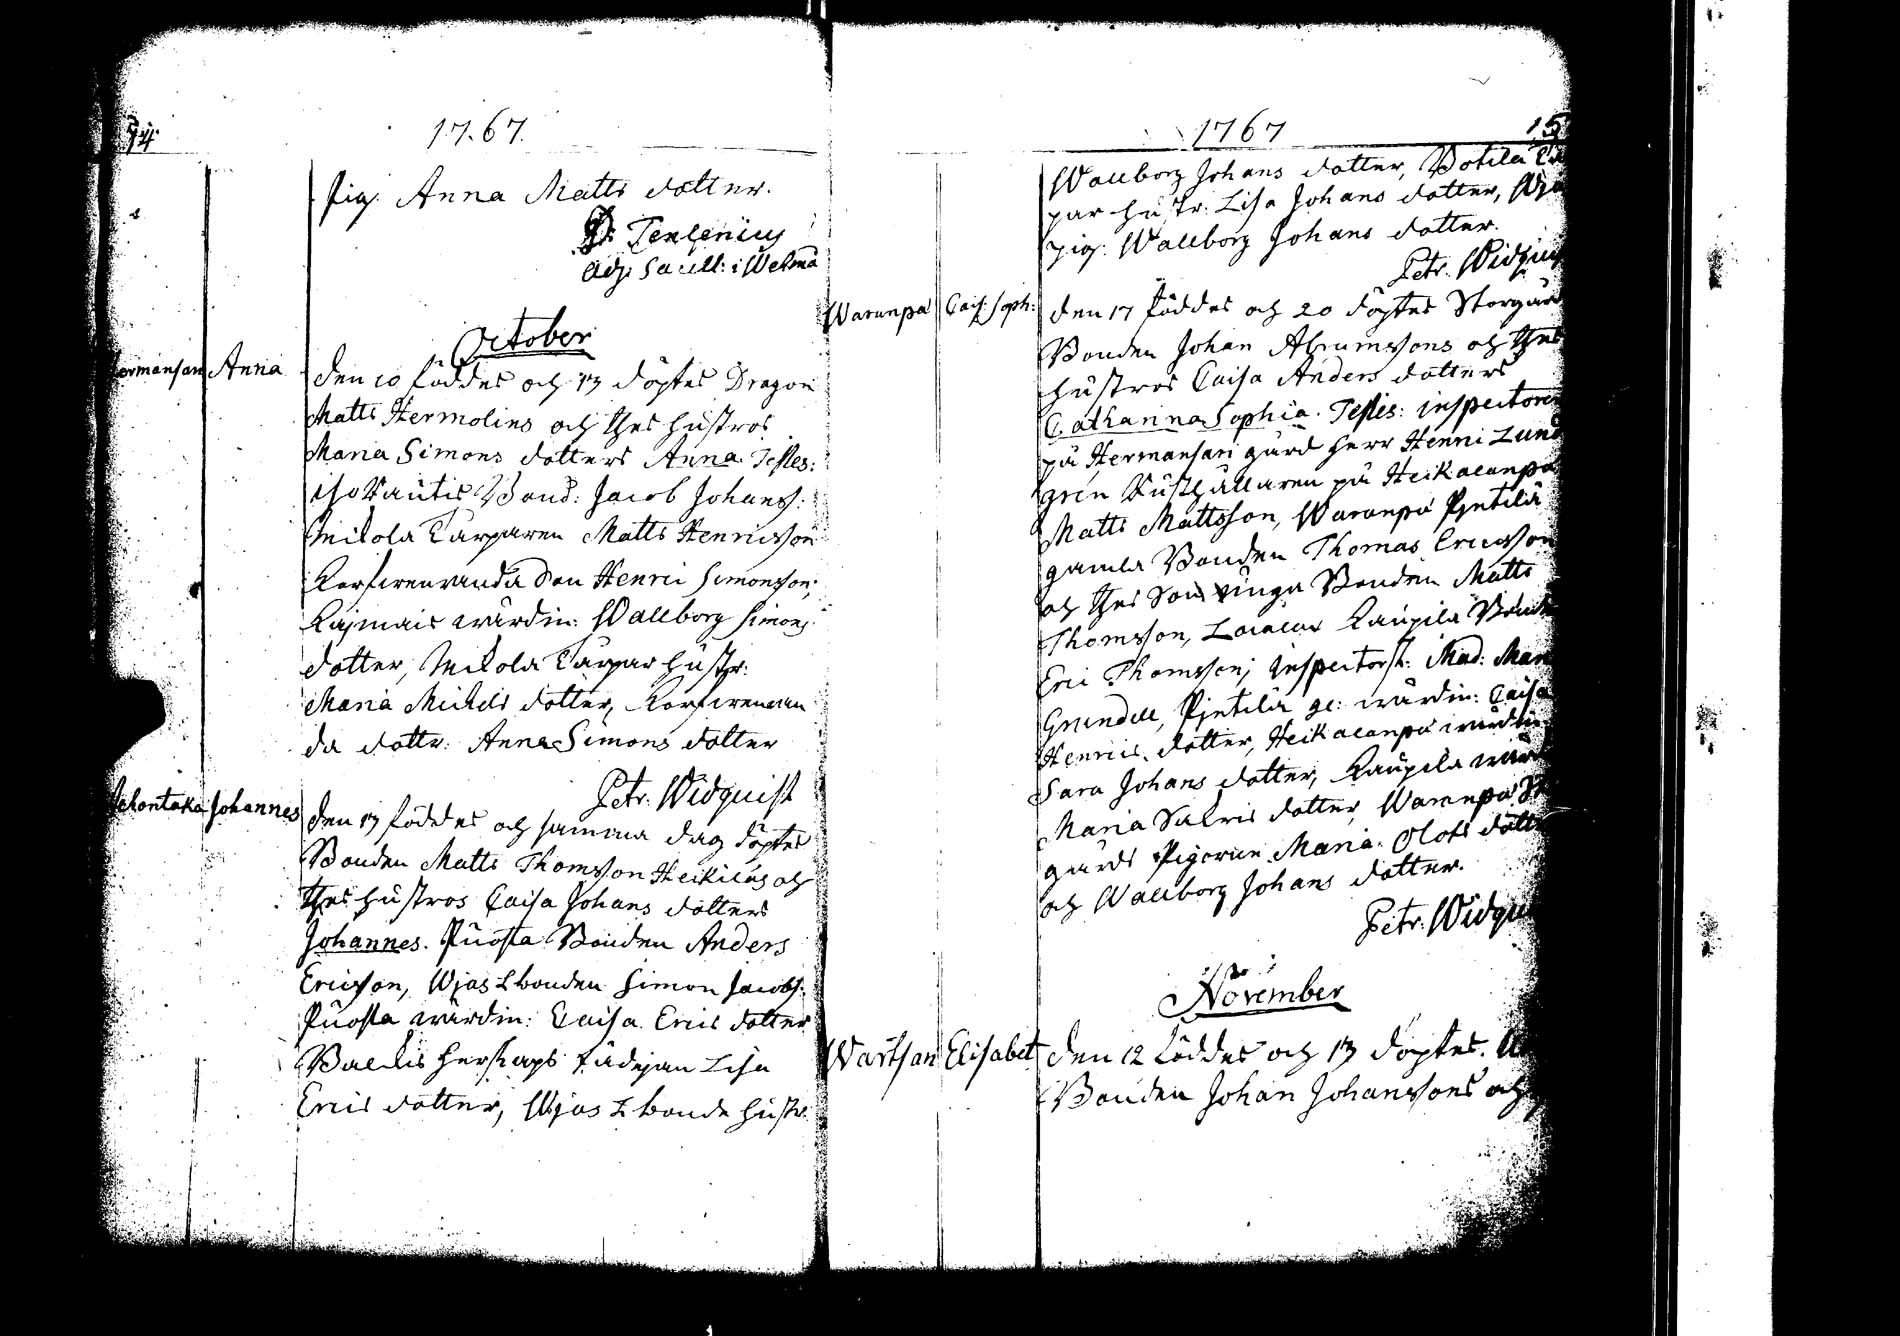 74
1767.
pig. Anna Matts dotter.
Dr. Tenlenius
Adj: Sacell: i Wehma
October
Hermansari Anna
den 10 föddes och 13 döptes Dragon
Matts Hermolins och thes hustros
Maria Simons dotters Anna. Testes:
Bond: Jacob Johanss:
Mikola Tårparen Matts Henricsson
Henric Simonsson,
wärdin: Wallborg Simons
dotter, Mikola Tårpar hustr:
Maria Michels dotter,
da dottr: Anna Simons dotter
Petr. Widquist
Johannes
den 13 föddes och samma dag döptes
Bonden Matts Thomsson Heikiläs och
thes hustros Caisa Johans dotters
Johannes. Puosta Bonden Anders
Ericsson, bonden Simon Jacobs:
Puosta wärdin: Caisa Erics dotter
herskaps Lisa
Erics dotter, bonde hustr:
1767
15
Wallborg Johans dotter,
par hustr: Lisa Johans dotter,
pig: Wallborg Johans dotter.
Petr. Widquist
Waranpä Caj: Soph:
den 17 föddes och 20 döptes Storgårds
Bonden Johan Abramssons och thes
hustros Caisa Anders dotters
Catharina Sophia. Testes: inspectoren
på Hermansari gård herr Henric Lund
gren Rusthållaren på Heikalanpä
Matts Mattsson, Waranpä Pjntilä
gamla Bonden Thomas Ericsson
och thes Son unga Bonden Matts
Thomsson, Kaupila Bonden
Eric Thomsson; inspectorsk: Mad: Maria
Grundell, Pjntilä gl: wärdin: Caisa
Henrics dotter, Heikalanpä wärdin:
Sara Johans dotter, Kaupila wärdin:
Maria dotter, Waranpä Stor
gårds Pigorne Maria Olofs dotter
och Wallborg Johans dotter.
Petr. Widquist
November
Wartsari Elisabet
den 12 föddes och 13 döptes.
Bonden Johan Johanssons och